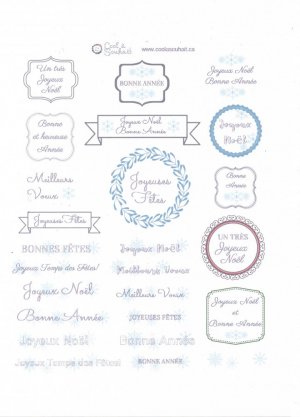 Cool à Souhait
www.coolasouhait.ca
Un très
Joyeux
Noël
BONNE ANNÉE
Joyeux Noël
Bonne Année
Bonne
et heureuse
Année
Joyeux Noël
Bonne Année
Joyeux
Noël
Meilleurs
Voeux
Joyeuses
Fêtes
Bonne
Année
Joyeuses Fêtes
UN TRÈS
Joyeux
Noël
BONNES FÊTES
Joyeux Noël
Joyeux Temps des Fêtes!
Meilleurs Voeux
Joyeux Noël
Meilleurs Voeux
Joyeux Noël
et
Bonne
Année
Bonne Année
JOYEUSES FÊTES
Joyeux Noël
Bonne Année
Joyeux Temps des Fêtes!
BONNE ANNÉE